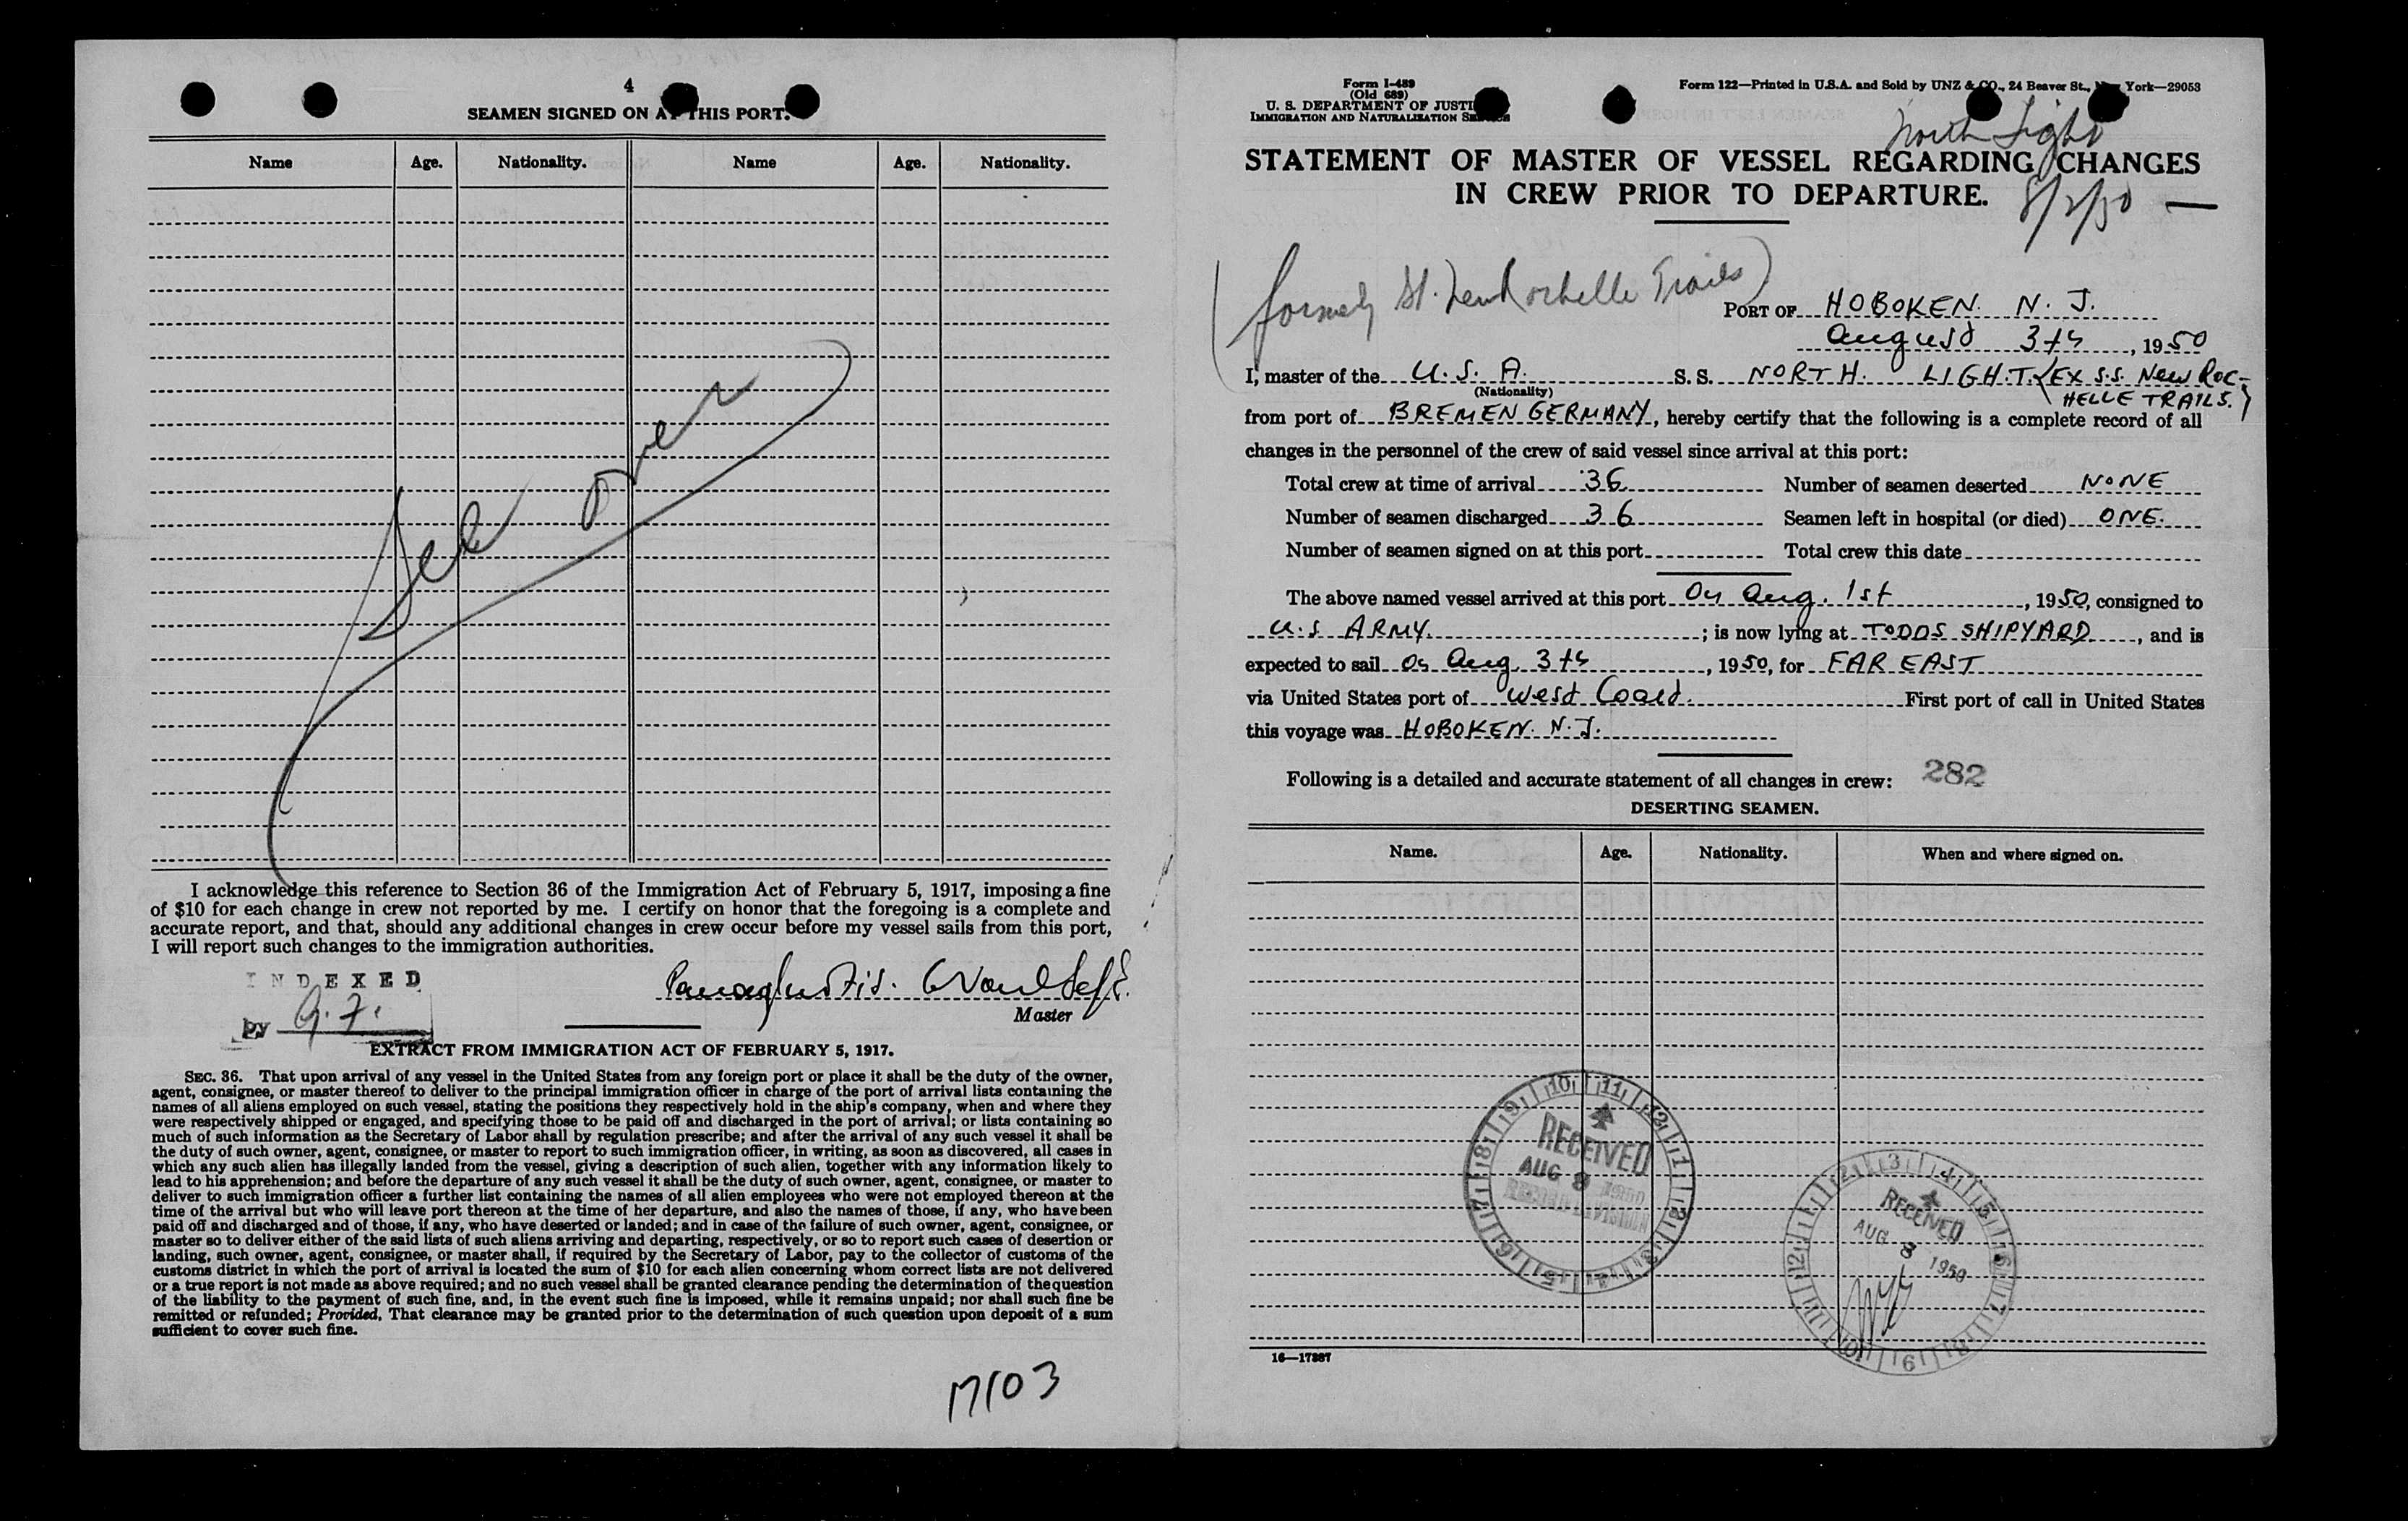 4
SEAMEN SIGNED ON AT THIS PORT.
Name Age. Nationality. Name Age. Nationality.
See over
I acknowledge this reference to Section 36 of the Immigration Act of February 5, 1917, imposing a fine
of $10 for each change in crew not reported by me. I certify on honor that the foregoing is a complete and
accurate report, and that, should any additional changes in crew occur before my vessel sails from this port,
I will report such changes to the immigration authorities.
INDEXED
by G. F.
Master
EXTRACT FROM IMMIGRATION ACT OF FEBRUARY 5, 1917.
SEC. 36. That upon arrival of any vessel in the United States from any foreign port or place it shall be the duty of the owner,
agent, consignee, or master thereof to deliver to the principal immigration officer in charge of the port of arrival lists containing the
names of all aliens employed on such vessel, stating the positions they respectively hold in the ship's company, when and where they
were respectively shipped or engaged, and specifying those to be paid off and discharged in the port of arrival; or lists containing so
much of such information as the Secretary of Labor shall by regulation prescribe; and after the arrival of any such vessel it shall be
the duty of such owner, agent, consignee, or master to report to such immigration officer, in writing, as soon as discovered, all cases in
which any such alien has illegally landed from the vessel, giving a description of such alien, together with any information likely to
lead to his apprehension; and before the departure of any such vessel it shall be the duty of such owner, agent, consignee, or master to
deliver to such immigration officer a further list containing the names of all alien employees who were not employed thereon at the
time of the arrival but who will leave port thereon at the time of her departure, and also the names of those, if any, who have been
paid off and discharged and of those, if any, who have deserted or landed; and in case of the failure of such owner, agent, consignee, or
master so to deliver either of the said lists of such aliens arriving and departing, respectively, or so to report such cases of desertion or
landing, such owner, agent, consignee, or master shall, if required by the Secretary of Labor, pay to the collector of customs of the
customs district in which the port of arrival is located the sum of $10 for each alien concerning whom correct lists are not delivered
or a true report is not made as above required; and no such vessel shall be granted clearance pending the determination of the question
of the liability to the payment of such fine, and, in the event such fine is imposed, while it remains unpaid; nor shall such fine be
remitted or refunded; Provided, That clearance may be granted prior to the determination of such question upon deposit of a sum
sufficient to cover such fine.
17103
Form I-489
(Old 689)
U. S. DEPARTMENT OF JUSTICE
IMMIGRATION AND NATURALIZATION SERVICE
Form 122—Printed in U.S.A. and Sold by UNZ & CO., 24 Beaver St., New York—29053
North Light
STATEMENT OF MASTER OF VESSEL REGARDING CHANGES
IN CREW PRIOR TO DEPARTURE.
8/2/50 —
(formerly St. New Rochelle Trails)
PORT OF HOBOKEN. N. J.
August 3th, 1950
I, master of the U. S. A. S. S. NORTH. LIGHT. (EX S.S. New ROC-
(Nationality) HELLE TRAILS.)
from port of BREMEN GERMANY, hereby certify that the following is a complete record of all
changes in the personnel of the crew of said vessel since arrival at this port:
Total crew at time of arrival 36 Number of seamen deserted NONE
Number of seamen discharged 36 Seamen left in hospital (or died) ONE.
Number of seamen signed on at this port Total crew this date
The above named vessel arrived at this port On Aug. 1st, 1950, consigned to
U.S ARMY. ; is now lying at TODDS SHIPYARD, and is
expected to sail On Aug. 3th, 1950, for FAR EAST
via United States port of West Coast. First port of call in United States
this voyage was HOBOKEN. N. J.
Following is a detailed and accurate statement of all changes in crew: 282
DESERTING SEAMEN.
Name. Age. Nationality. When and where signed on.
RECEIVED
AUG 8 1950
RECORD DIVISION
RECEIVED
AUG 3 1950
16—17387